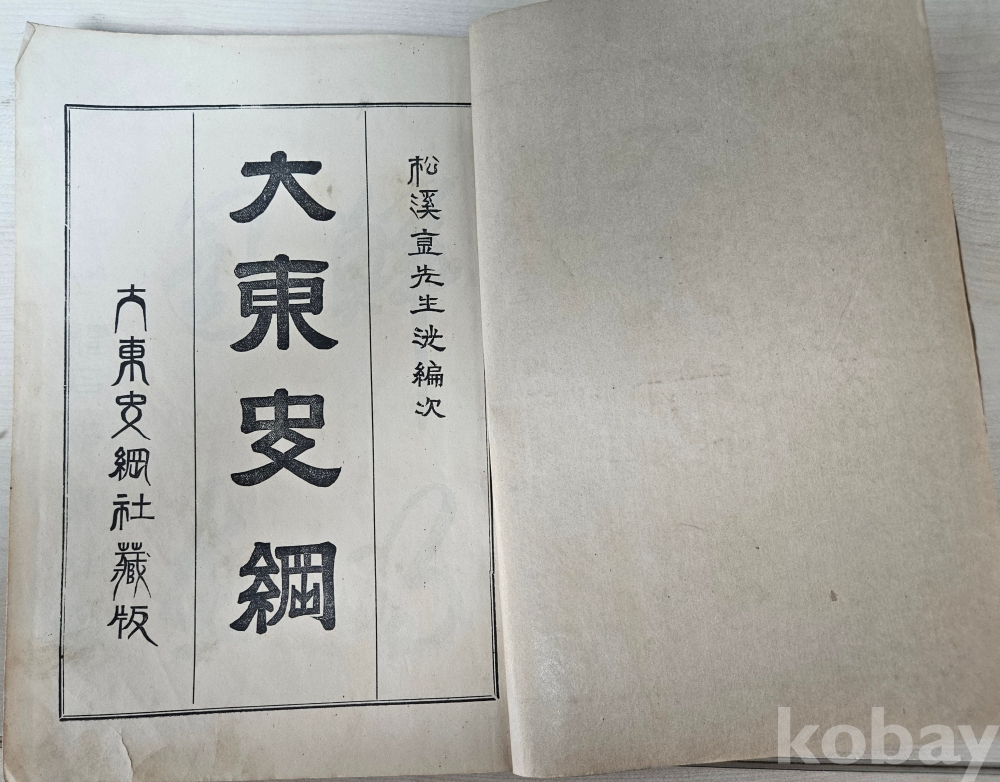 松溪金先生洸編次
大東史綱
大東史綱社藏版
kobay